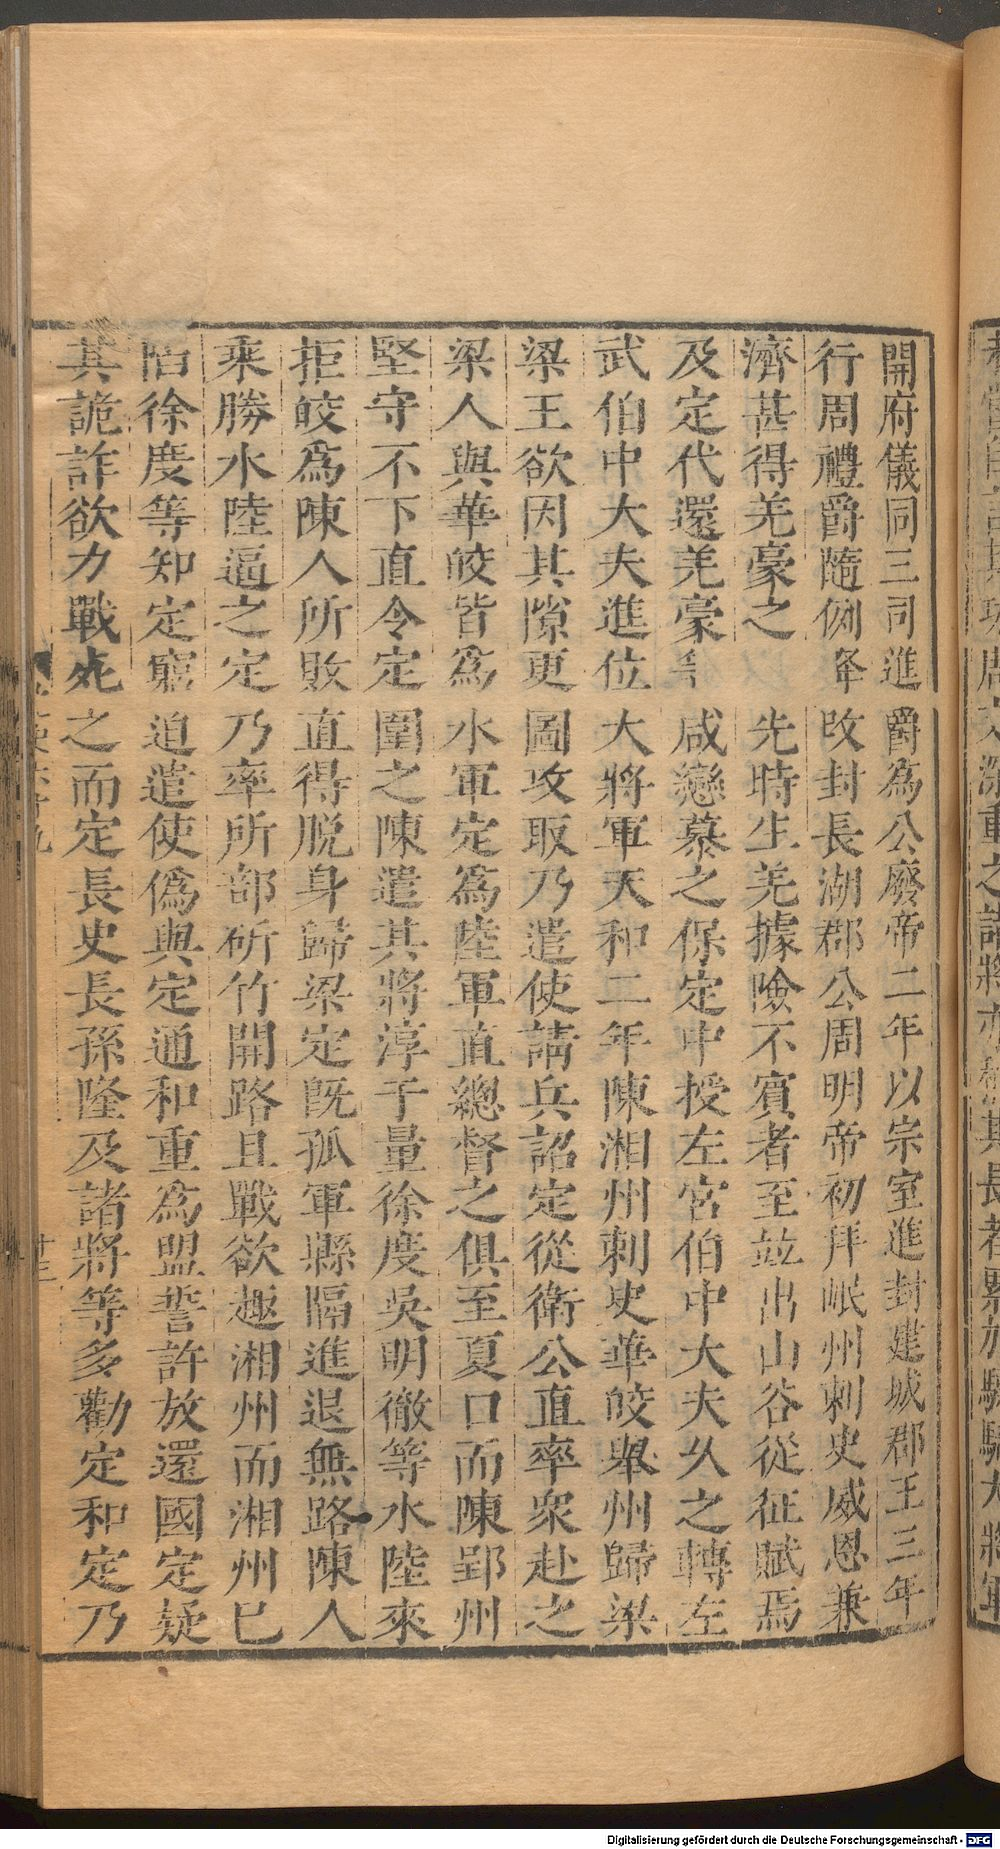 開府儀同三司進爵為公廢帝二年以宗室進封建城郡王三年
行周禮爵隨例降改封長湖郡公周明帝初拜岷州刺史威恩兼
濟甚得羌豪之先時生羌據險不賓者至並出山谷從征賦焉
及定代還羌豪等咸戀慕之保定中授左宮伯中大夫久之轉左
武伯中大夫進位大將軍天和二年陳湘州刺史華皎舉州歸梁
梁王欲因其隙更圖攻取乃遣使請兵詔定從衛公直率衆赴之
梁人與華皎皆為水軍定為陸軍直總督之俱至夏口而陳郢州
堅守不下直令定圍之陳遣其將淳于量徐度吳明徹等水陸來
拒皎為陳人所敗直得脱身歸梁定既孤軍縣隔進退無路陳人
乘勝水陸逼之定乃率所部斫竹開路且戰欲趣湘州而湘州已
陷徐度等知定窮迫遣使偽與定通和重為盟誓許放還國定疑
其詭詐欲力戰死之而定長史長孫隆及諸將等多勸定和定乃
十三
Digitalisierung gefördert durch die Deutsche Forschungsgemeinschaft - DFG